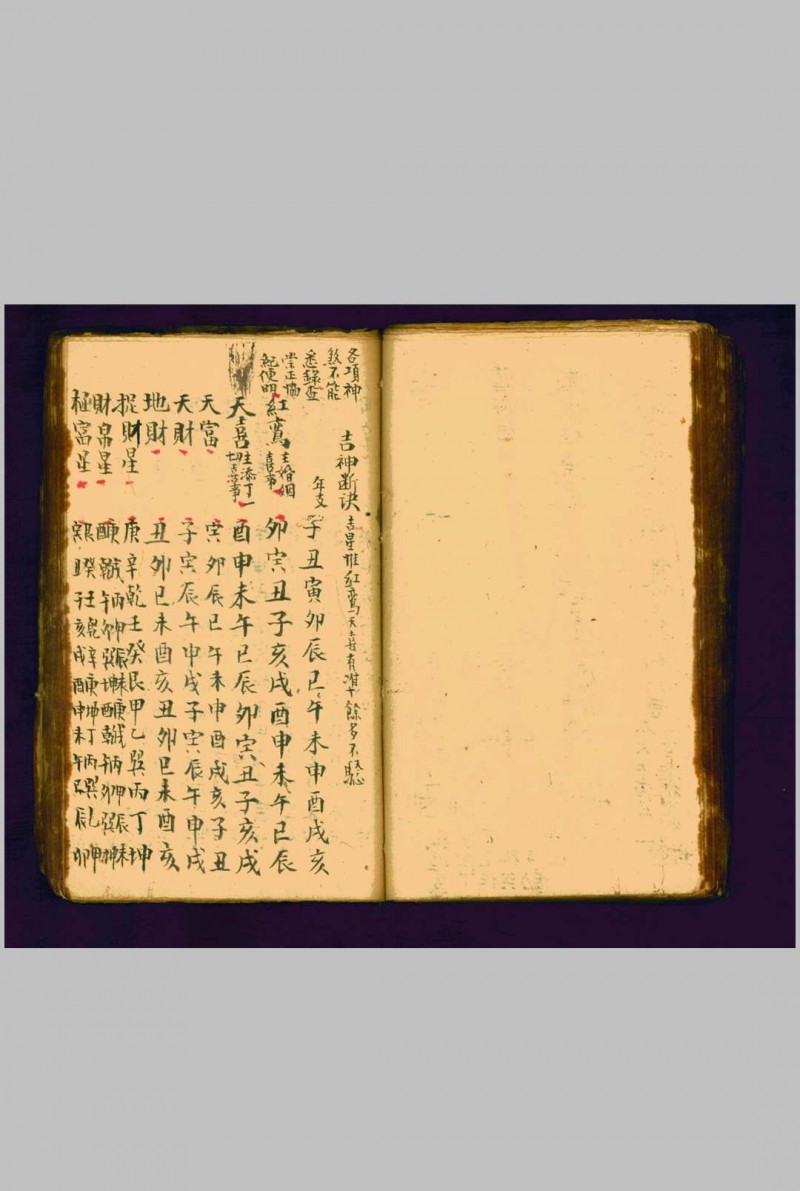 各項神
煞不能
悉錄查
崇正協
紀便明
吉神斷訣 吉星惟紅鸞天喜有準餘多不驗
年支 子丑寅卯辰巳午未申酉戌亥
紅鸞 主婚姻喜事 卯寅丑子亥戌酉申未午巳辰
天喜 主添丁一切吉事 酉申未午巳辰卯寅丑子亥戌
天富 寅卯辰巳午未申酉戌亥子丑
天財 子寅辰午申戌子寅辰午申戌
地財 丑卯巳未酉亥丑卯巳未酉亥
捉財星 庚辛乾壬癸艮甲乙巽丙丁坤
財帛星
極富星